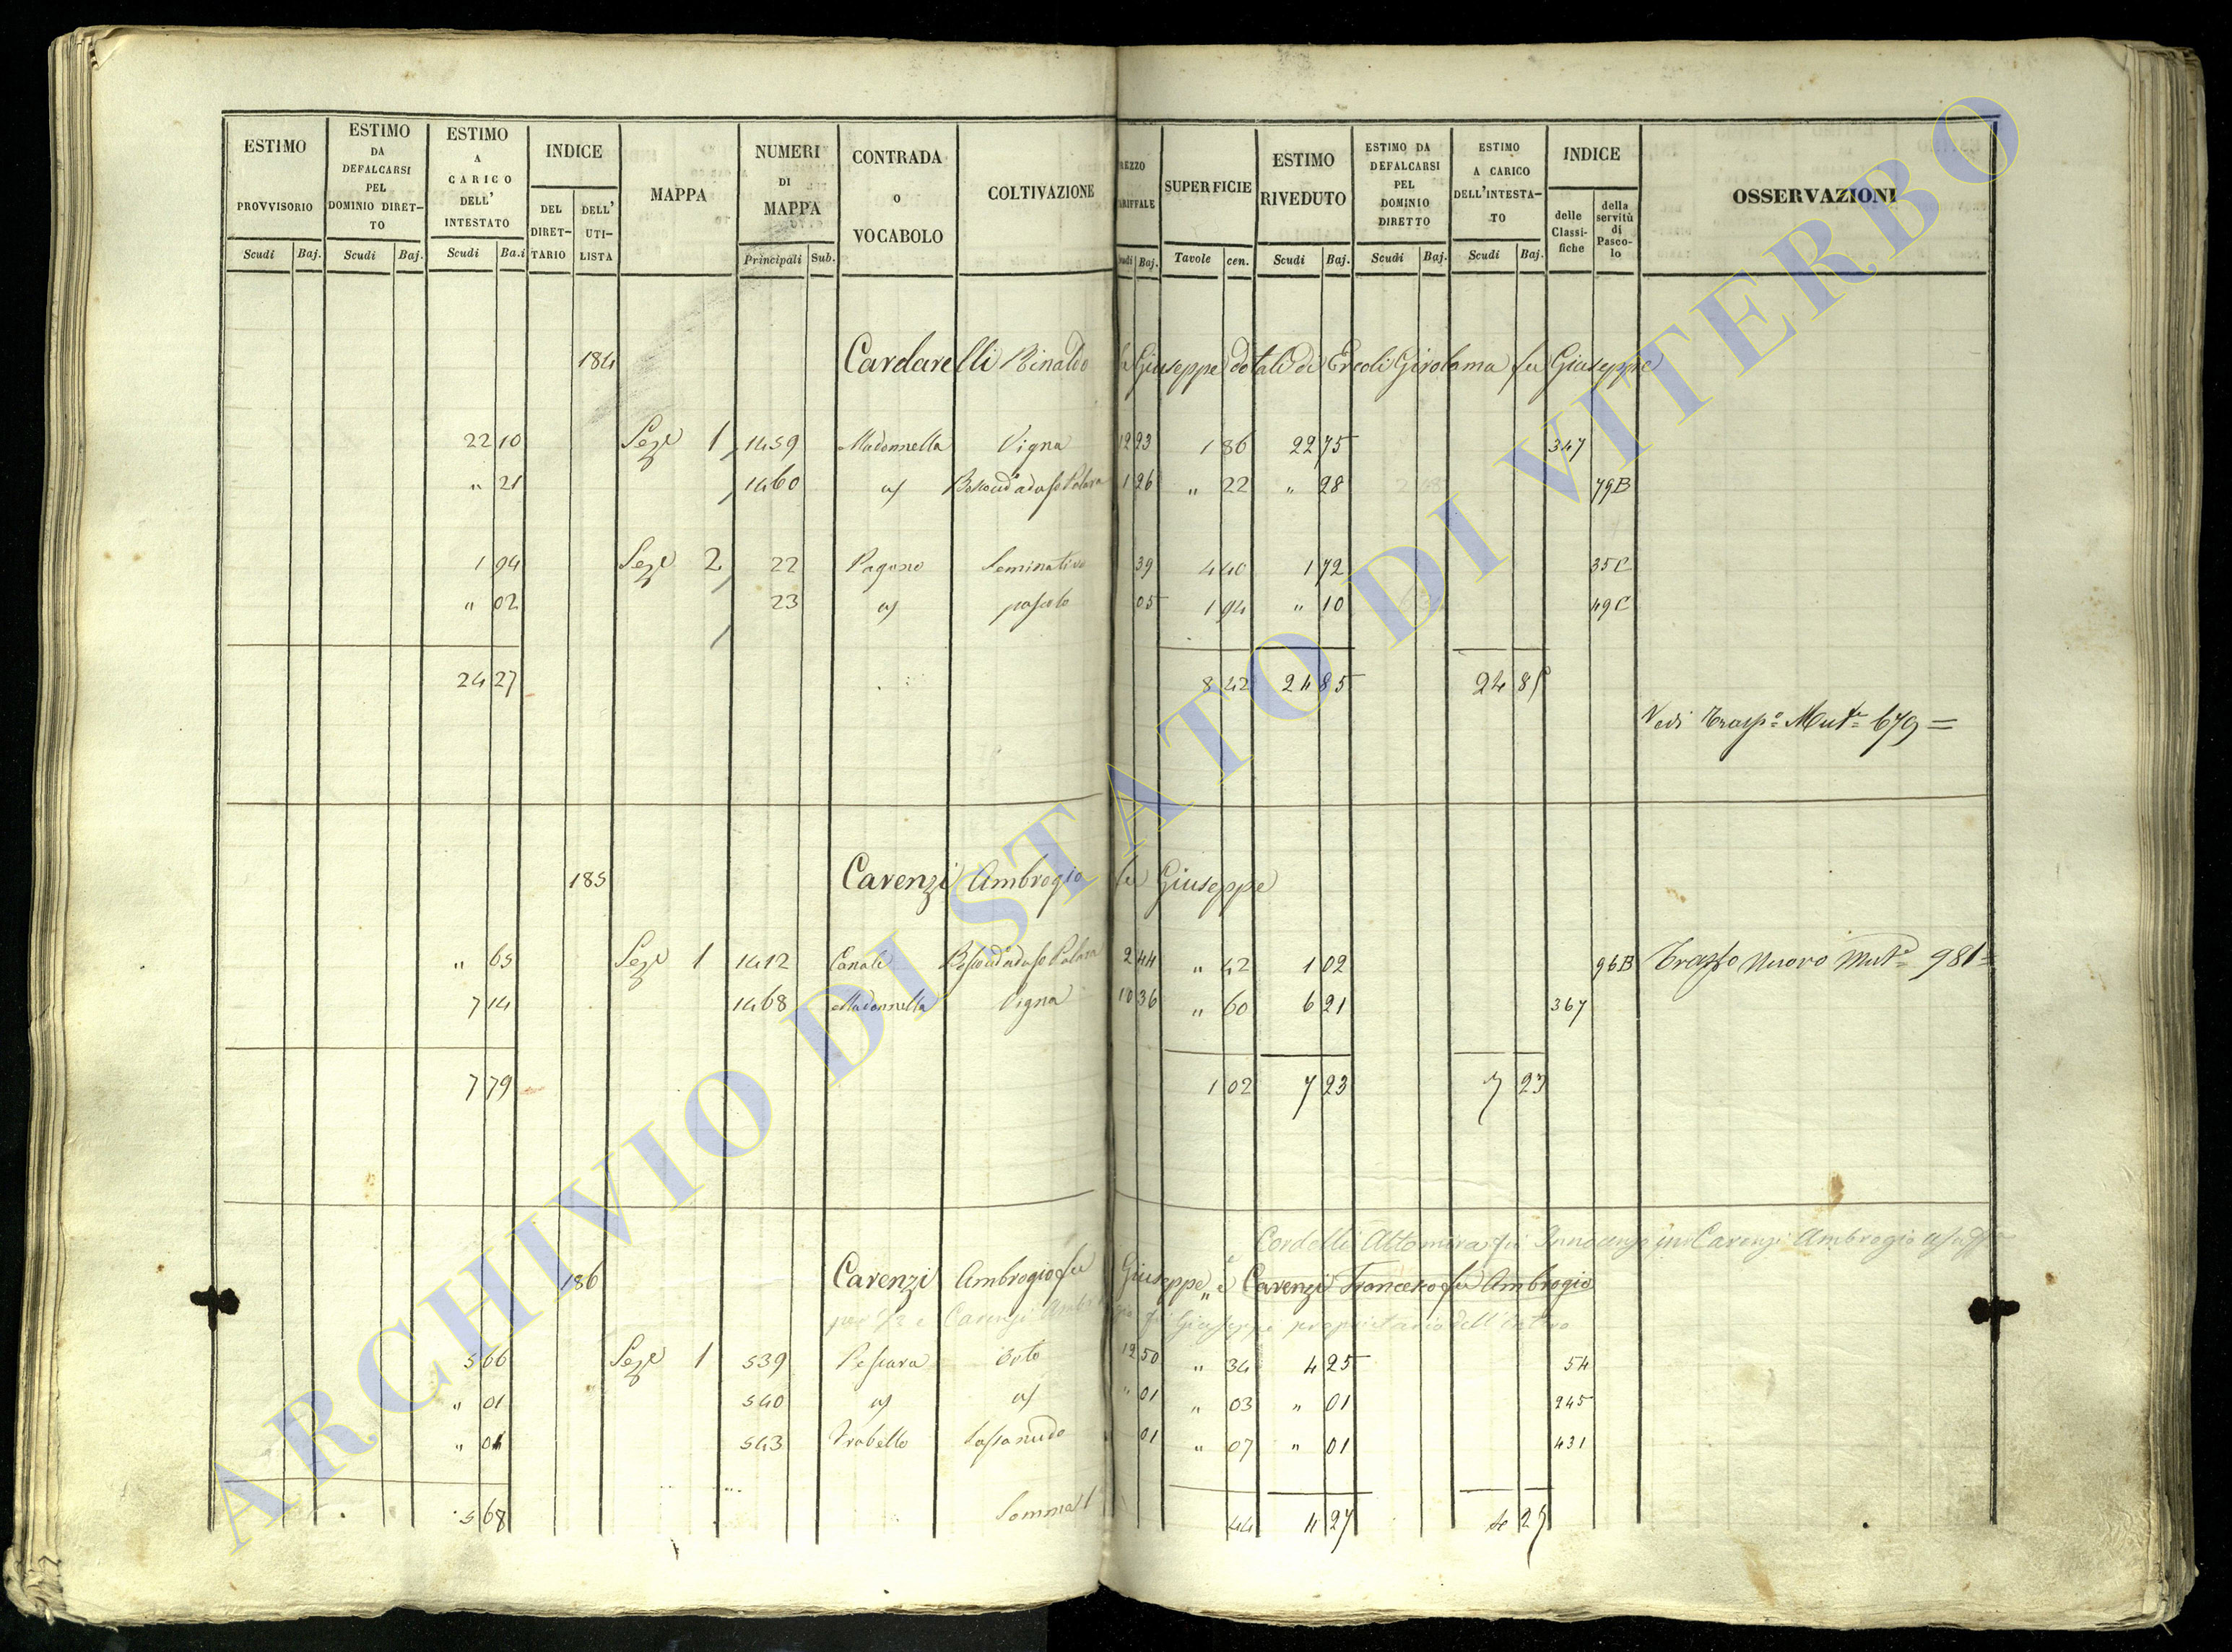 ESTIMO PROVVISORIO Scudi Baj. ESTIMO DA DEFALCARSI PEL DOMINIO DIRET-TO Scudi Baj. ESTIMO A CARICO DELL' INTESTATO Scudi Ba.i INDICE DEL DIRET-TARIO DELL' UTI-LISTA MAPPA NUMERI DI MAPPA Principali Sub. CONTRADA o VOCABOLO COLTIVAZIONE REZZO ARIFFALE udi Baj. SUPERFICIE Tavole cen. ESTIMO RIVEDUTO Scudi Baj. ESTIMO DA DEFALCARSI PEL DOMINIO DIRETTO Scudi Baj. ESTIMO A CARICO DELL'INTESTA-TO Scudi Baj. INDICE delle Classi-fiche della servitù di Pasco-lo OSSERVAZIONI
184 Cardarelli Rinaldo fu Giuseppe dotali di Ercoli Girolama fu Giuseppe
22 10 Seze 1 1459 Madonnella Vigna 12 23 1 86 22 75 347
" 21 1460 a/ 1 26 " 22 " 28 79B
1 94 Seze 2 22 Pagano Seminativo 39 4 40 1 72 35C
" 02 23 a/ pascolo 05 1 94 " 10 49C
24 27 8 42 24 85 24 85
Vedi Trasp.o Mut.e 679 =
185 Carenzi Ambrogio fu Giuseppe
" 65 Seze 1 1412 Canale 2 44 " 42 1 02 96B Trasp.o Nuovo Mut.e 981 =
7 14 1468 Madonnella Vigna 10 36 " 60 6 21 367
7 79 1 02 7 23 7 23
e Cordelli Altomira fu Innocenzo in Carenzi Ambrogio
186 Carenzi Ambrogio fu Giuseppe " e Carenzi Francesco fu Ambrogio
per 1/2 e Carenzi Ambrogio fu Giuseppe proprietario dell'intero
5 66 Seze 1 539 Pescara Orto 12 50 " 34 4 25 54
" 01 540 a/ a/ " 01 " 03 " 01 245
" 01 543 Trabello Sasso nudo 01 " 07 " 01 431
5 68 Somma 44 4 27 4 27
ARCHIVIO DI STATO DI VITERBO